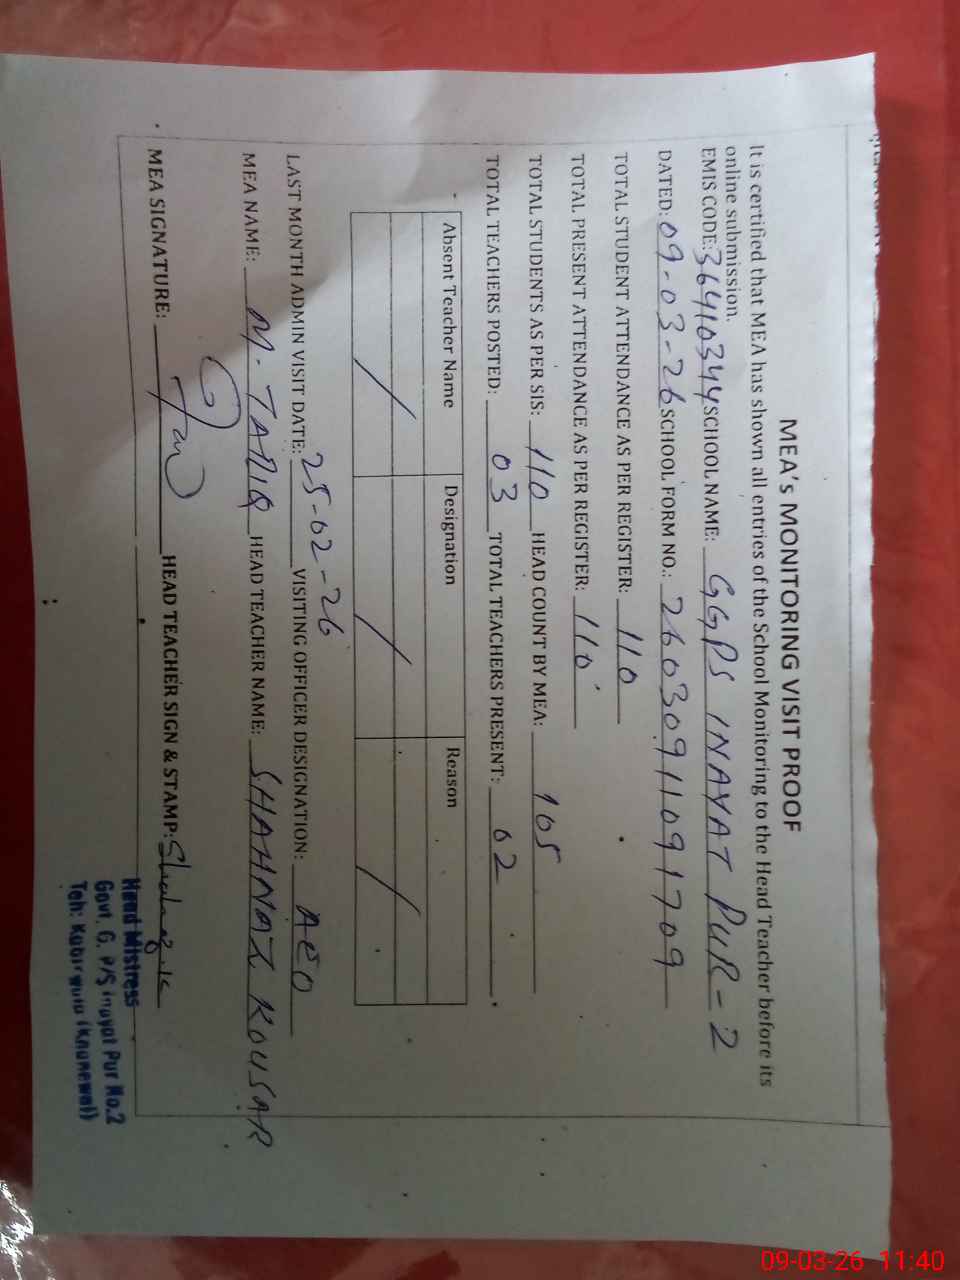 MEA's MONITORING VISIT PROOF
It is certified that MEA has shown all entries of the School Monitoring to the Head Teacher before its
online submission.
EMIS CODE: 36410344 SCHOOL NAME: GGPS INAYAT PUR-2
DATED: 09-03-26 SCHOOL FORM NO.: 26030911091709
TOTAL STUDENT ATTENDANCE AS PER REGISTER: 110
TOTAL PRESENT ATTENDANCE AS PER REGISTER: 110
TOTAL STUDENTS AS PER SIS: 110 HEAD COUNT BY MEA: 105
TOTAL TEACHERS POSTED: 03 TOTAL TEACHERS PRESENT: 02
Absent Teacher Name Designation Reason
/ / /
LAST MONTH ADMIN VISIT DATE: 25-02-26 VISITING OFFICER DESIGNATION: AEO
MEA NAME: M. TARIQ HEAD TEACHER NAME: SHAHNAZ KOUSAR
MEA SIGNATURE: HEAD TEACHER SIGN & STAMP:
Head Mistress
Govt. G. P/S Inayat Pur No.2
Teh: Kabirwala (Khanewal)
09-03-26 11:40